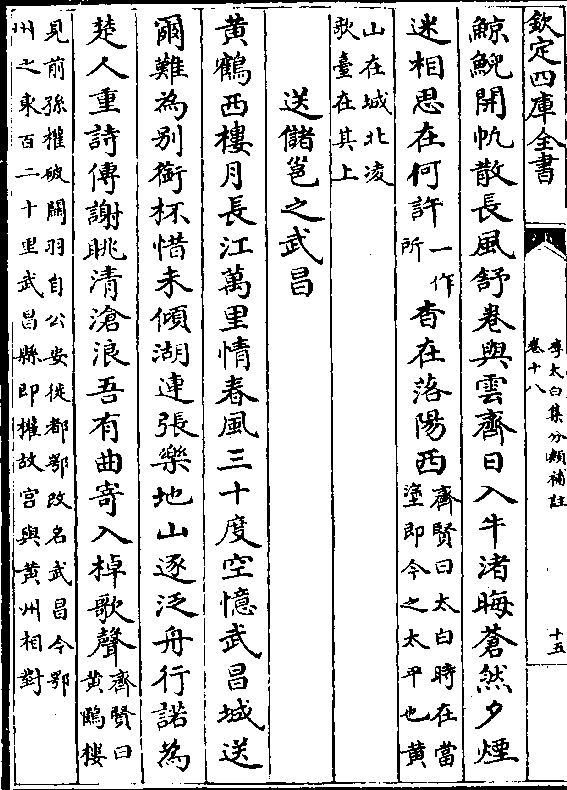 欽定四庫全書
李太白集分類補註
卷十八
十五
鯨鯢開㠶散長風舒卷與雲齊日入牛渚晦蒼然夕煙
迷相思在何許
一作
所
杳在落陽西
齊賢曰太白時在當
塗即今之太平也黄
山在城北凌
歌臺在其上
送儲邕之武昌
黄鶴西樓月長江萬里情春風三十度空憶武昌城送
爾難為别銜杯惜未傾湖連張樂地山逐泛舟行諾為
楚人重詩傳謝朓清滄浪吾有曲寄入棹歌聲
齊賢曰
黄鶴樓
見前孫權破關羽自公安徙都鄂改名武昌今鄂
州之東百二十里武昌縣即權故宫與黄州相對